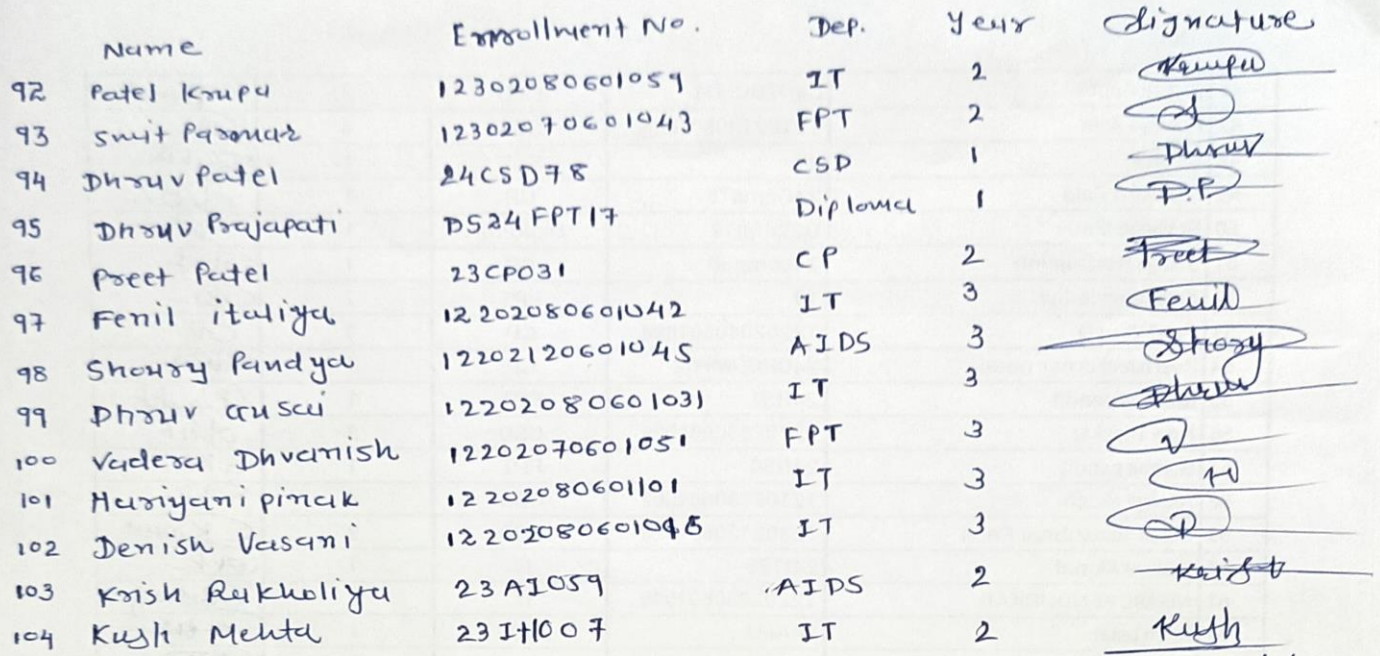 Name Enrollment No. Dep. Year Signature
92 Patel Krupa 12302080601059 IT 2 Krupa
93 Smit Parmar 12302070601043 FPT 2
94 Dhruv Patel 24CSD78 CSD 1 Dhruv
95 Dhruv Prajapati DS24FPT17 Diploma 1 D.P
96 Preet Patel 23CP031 CP 2 Preet
97 Fenil italiya 12202080601042 IT 3 Fenil
98 Shoury Pandya 12202120601045 AIDS 3 Shory
99 Dhruv Gusai 12202080601031 IT 3 Dhruv
100 Vadera Dhvanish 12202070601051 FPT 3
101 Hariyani pinak 12202080601101 IT 3
102 Denish Vasani IT 3 D
103 Krish Rakholiya 23AI059 AIDS 2
104 Kush Mehta IT 2 Kush